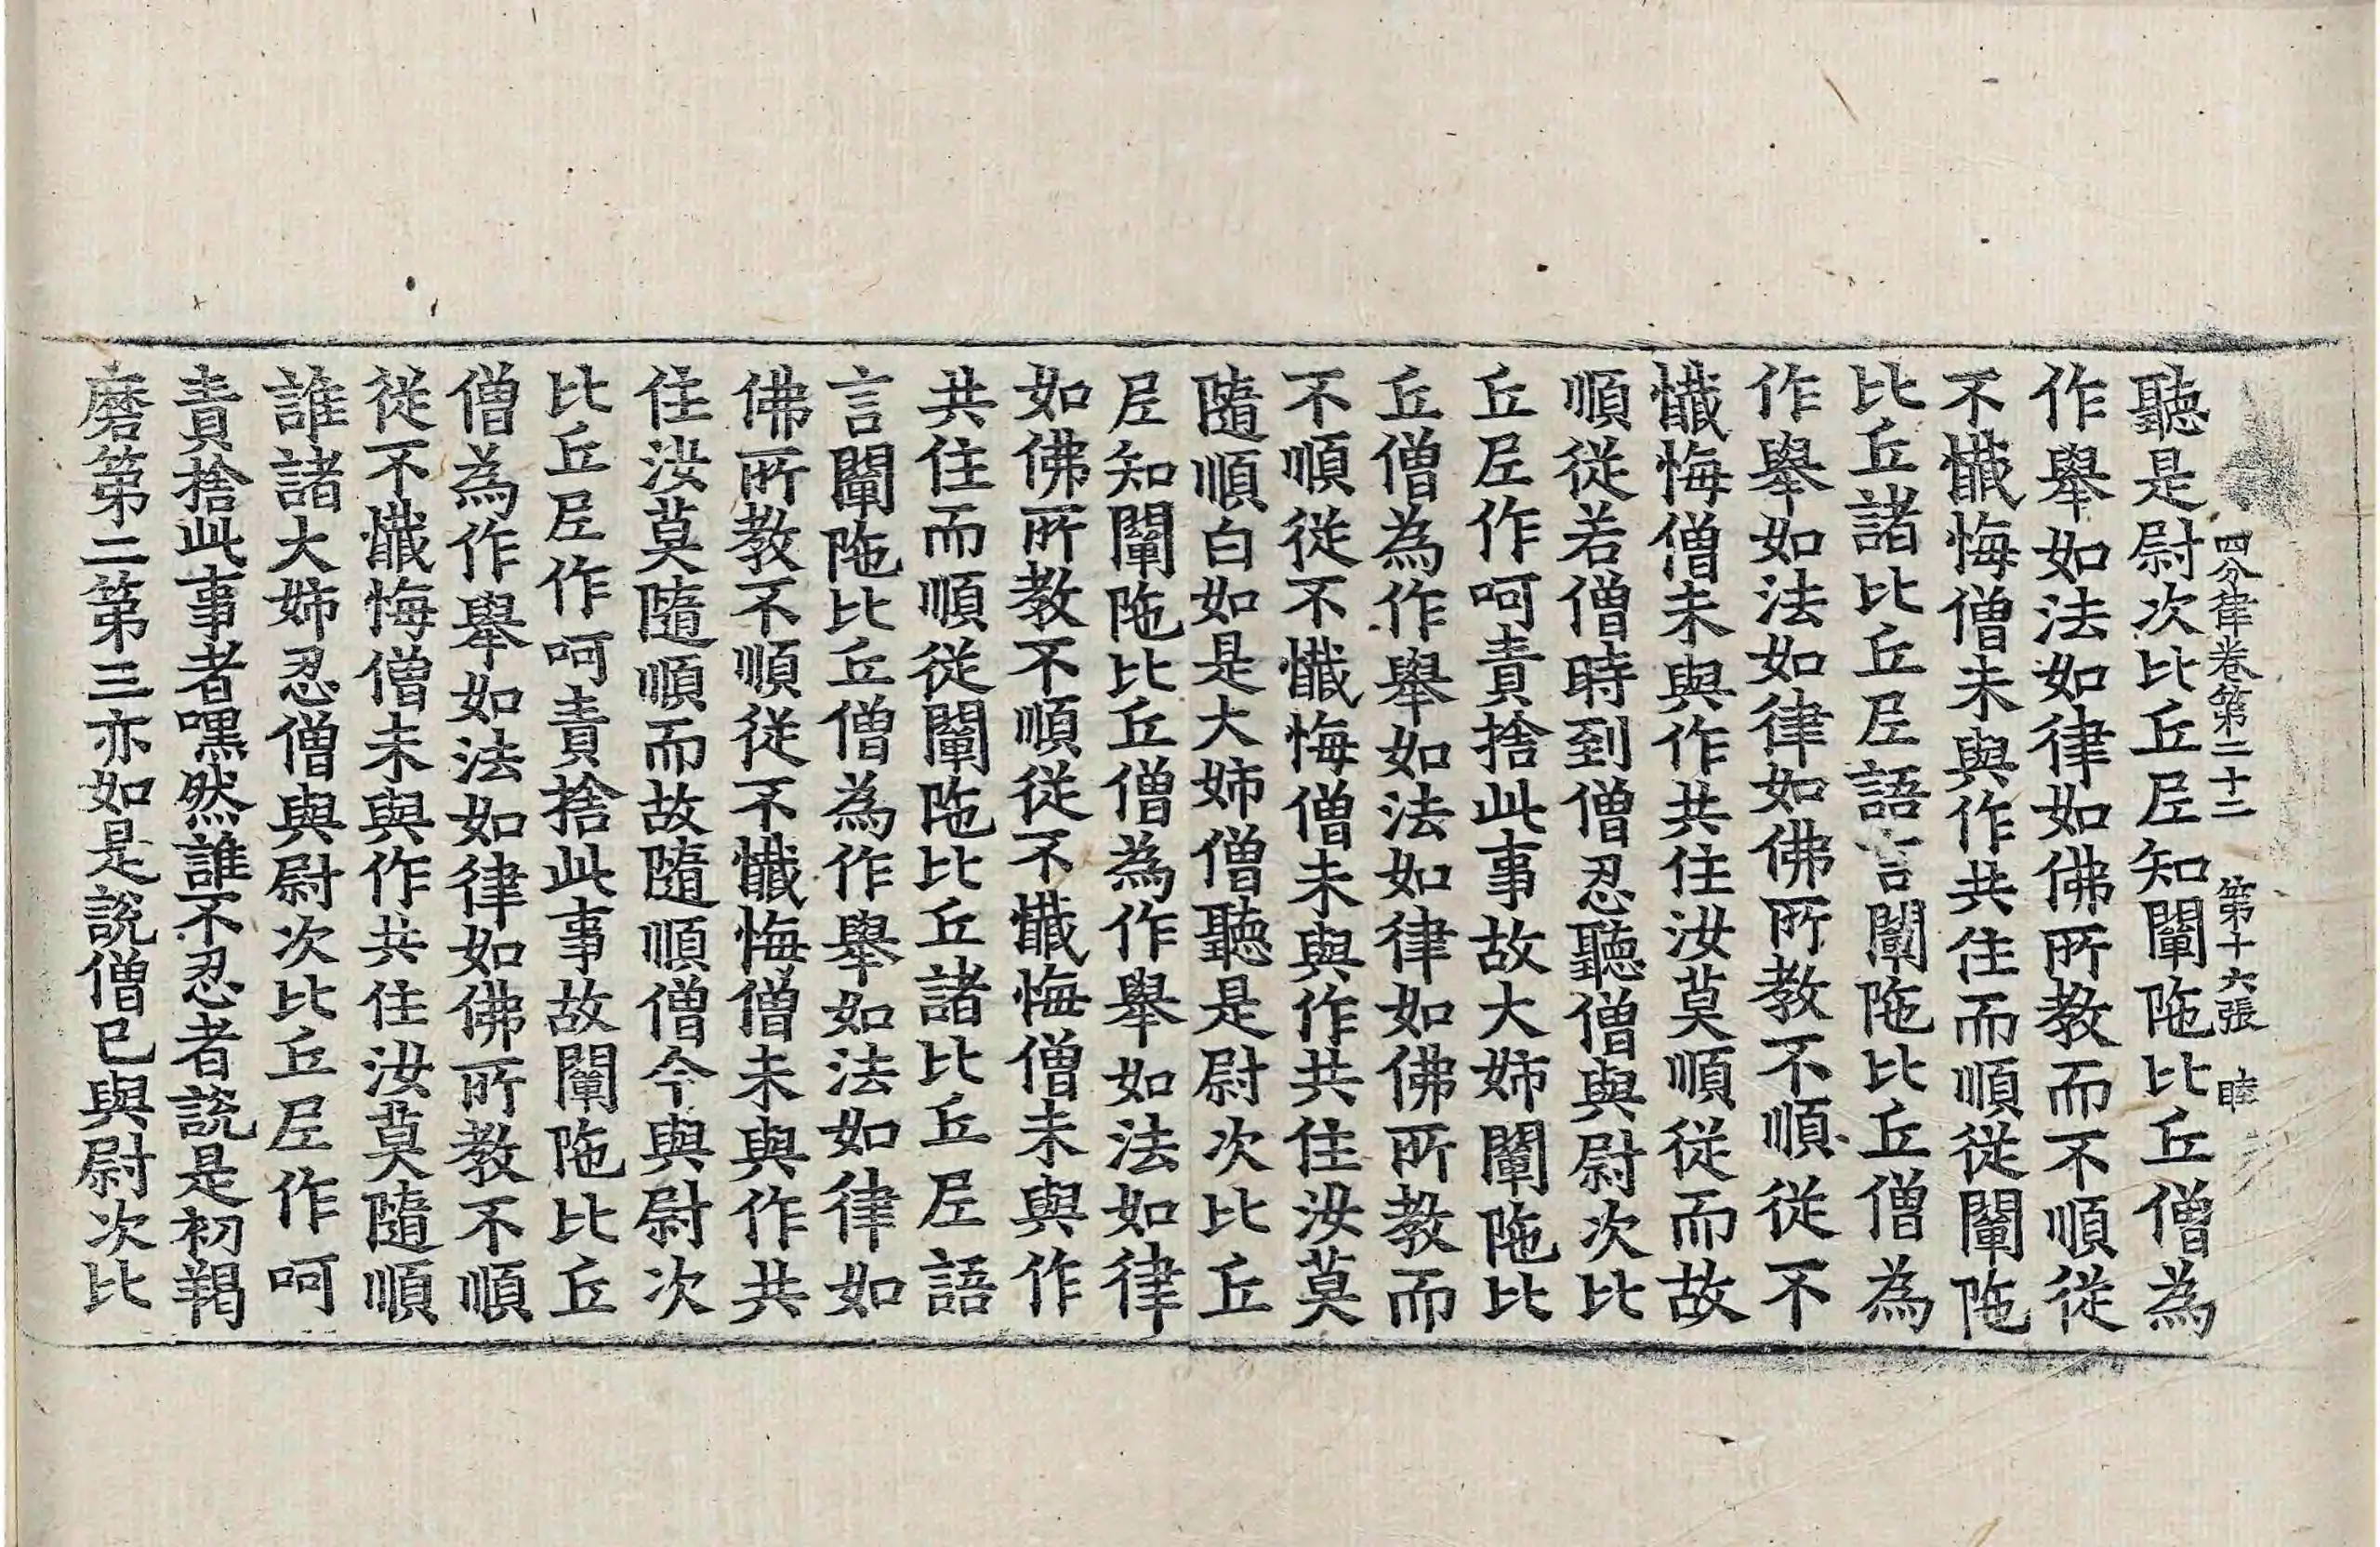 四分律卷第二十二　第十六張　睦
聽是尉次比丘尼知闡陁比丘僧為
作舉如法如律如佛所教而不順從
不懺悔僧未與作共住而順從闡陁
比丘諸比丘尼語言闡陁比丘僧為
作舉如法如律如佛所教不順從不
懺悔僧未與作共住汝莫順從而故
順從若僧時到僧忍聽僧與尉次比
丘尼作呵責捨此事故大姉闡陁比
丘僧為作舉如法如律如佛所教而
不順從不懺悔僧未與作共住汝莫
隨順白如是大姉僧聽是尉次比丘
尼知闡陁比丘僧為作舉如法如律
如佛所教不順從不懺悔僧未與作
共住而順從闡陁比丘諸比丘尼語
言闡陁比丘僧為作舉如法如律如
佛所教不順從不懺悔僧未與作共
住汝莫隨順而故隨順僧今與尉次
比丘尼作呵責捨此事故闡陁比丘
僧為作舉如法如律如佛所教不順
從不懺悔僧未與作共住汝莫隨順
誰諸大姉忍僧與尉次比丘尼作呵
責捨此事者嘿然誰不忍者說是初羯
磨第二第三亦如是說僧已與尉次比